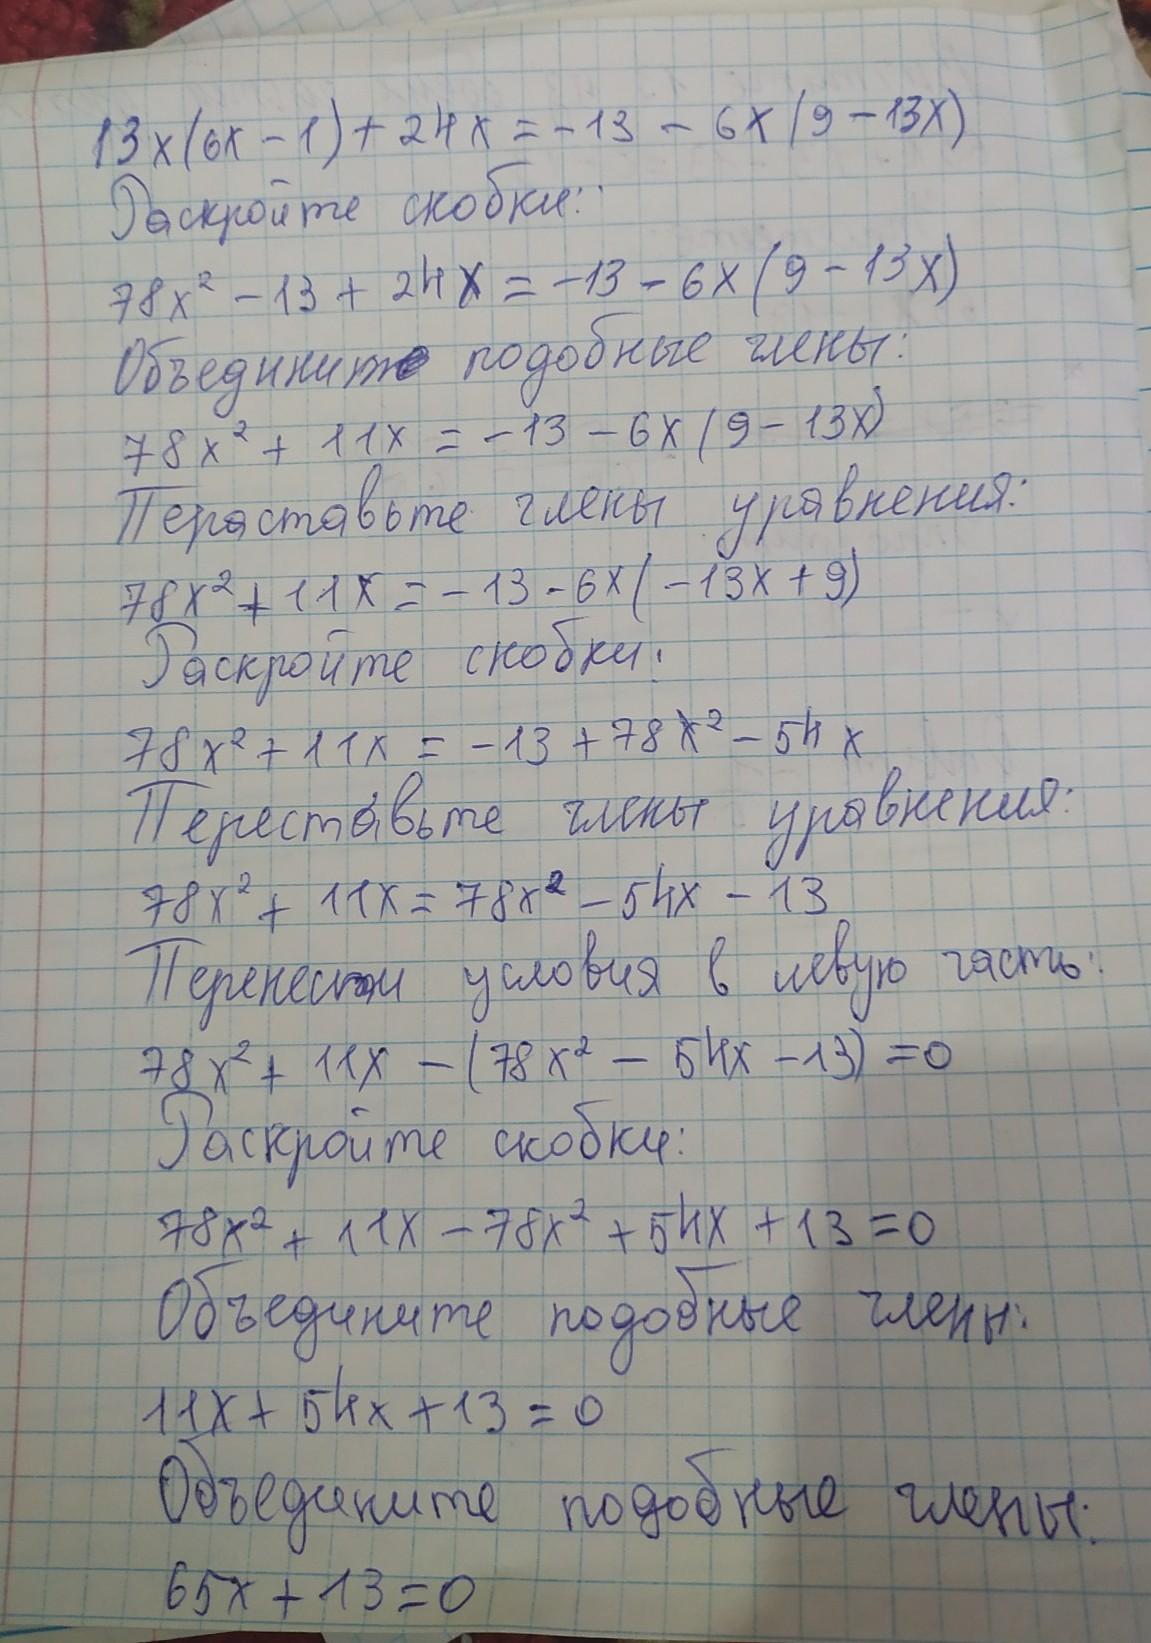 13x(6x-1)+24x=-13-6x(9-13x)
Раскройте скобки:
78x²-13+24x=-13-6x(9-13x)
Объедините подобные члены:
78x²+11x=-13-6x(9-13x)
Пераставьте члены уравнения:
78x²+11x=-13-6x(-13x+9)
Раскройте скобки:
78x²+11x=-13+78x²-54x
Переставьте члены уравнения:
78x²+11x=78x²-54x-13
Перенести условия в левую часть:
78x²+11x-(78x²-54x-13)=0
Раскройте скобки:
78x²+11x-78x²+54x+13=0
Объедините подобные члены:
11x+54x+13=0
Объедините подобные члены:
65x+13=0